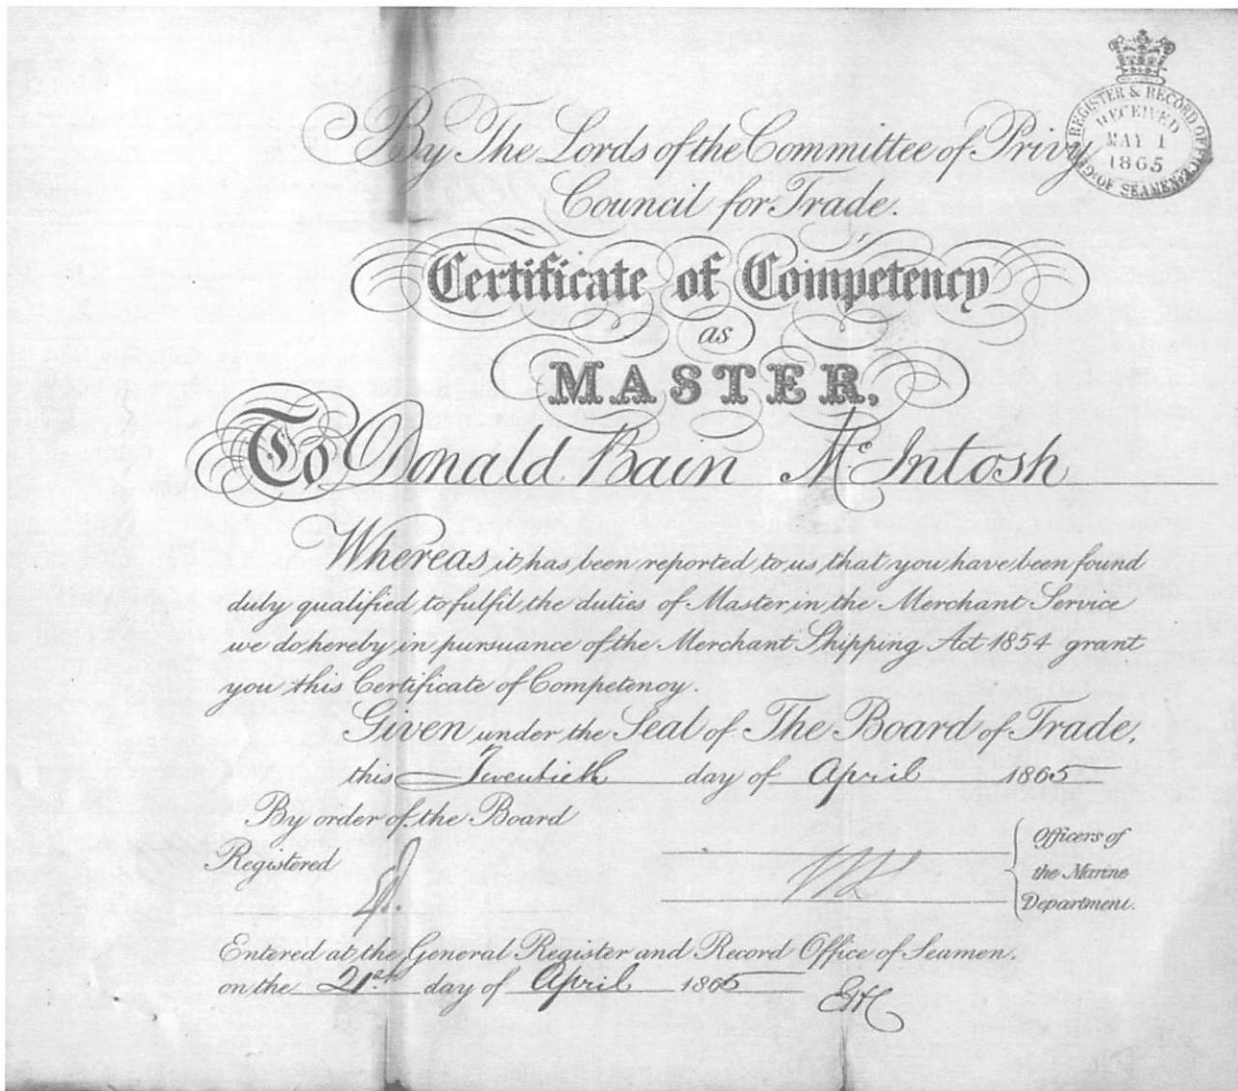 REGISTER & RECORD OFFICE OF SEAMEN
RECEIVED
MAY 1
1865
By The Lords of the Committee of Privy
Council for Trade.
Certificate of Competency
as
MASTER,
To Donald Bain McIntosh
Whereas it has been reported to us that you have been found
duly qualified to fulfil the duties of Master in the Merchant Service
we do hereby in pursuance of the Merchant Shipping Act 1854 grant
you this Certificate of Competency.
Given under the Seal of The Board of Trade,
this Twentieth day of April 1865
By order of the Board
Registered
Officers of
the Marine
Department.
Entered at the General Register and Record Office of Seamen.
on the 21st day of April 1865